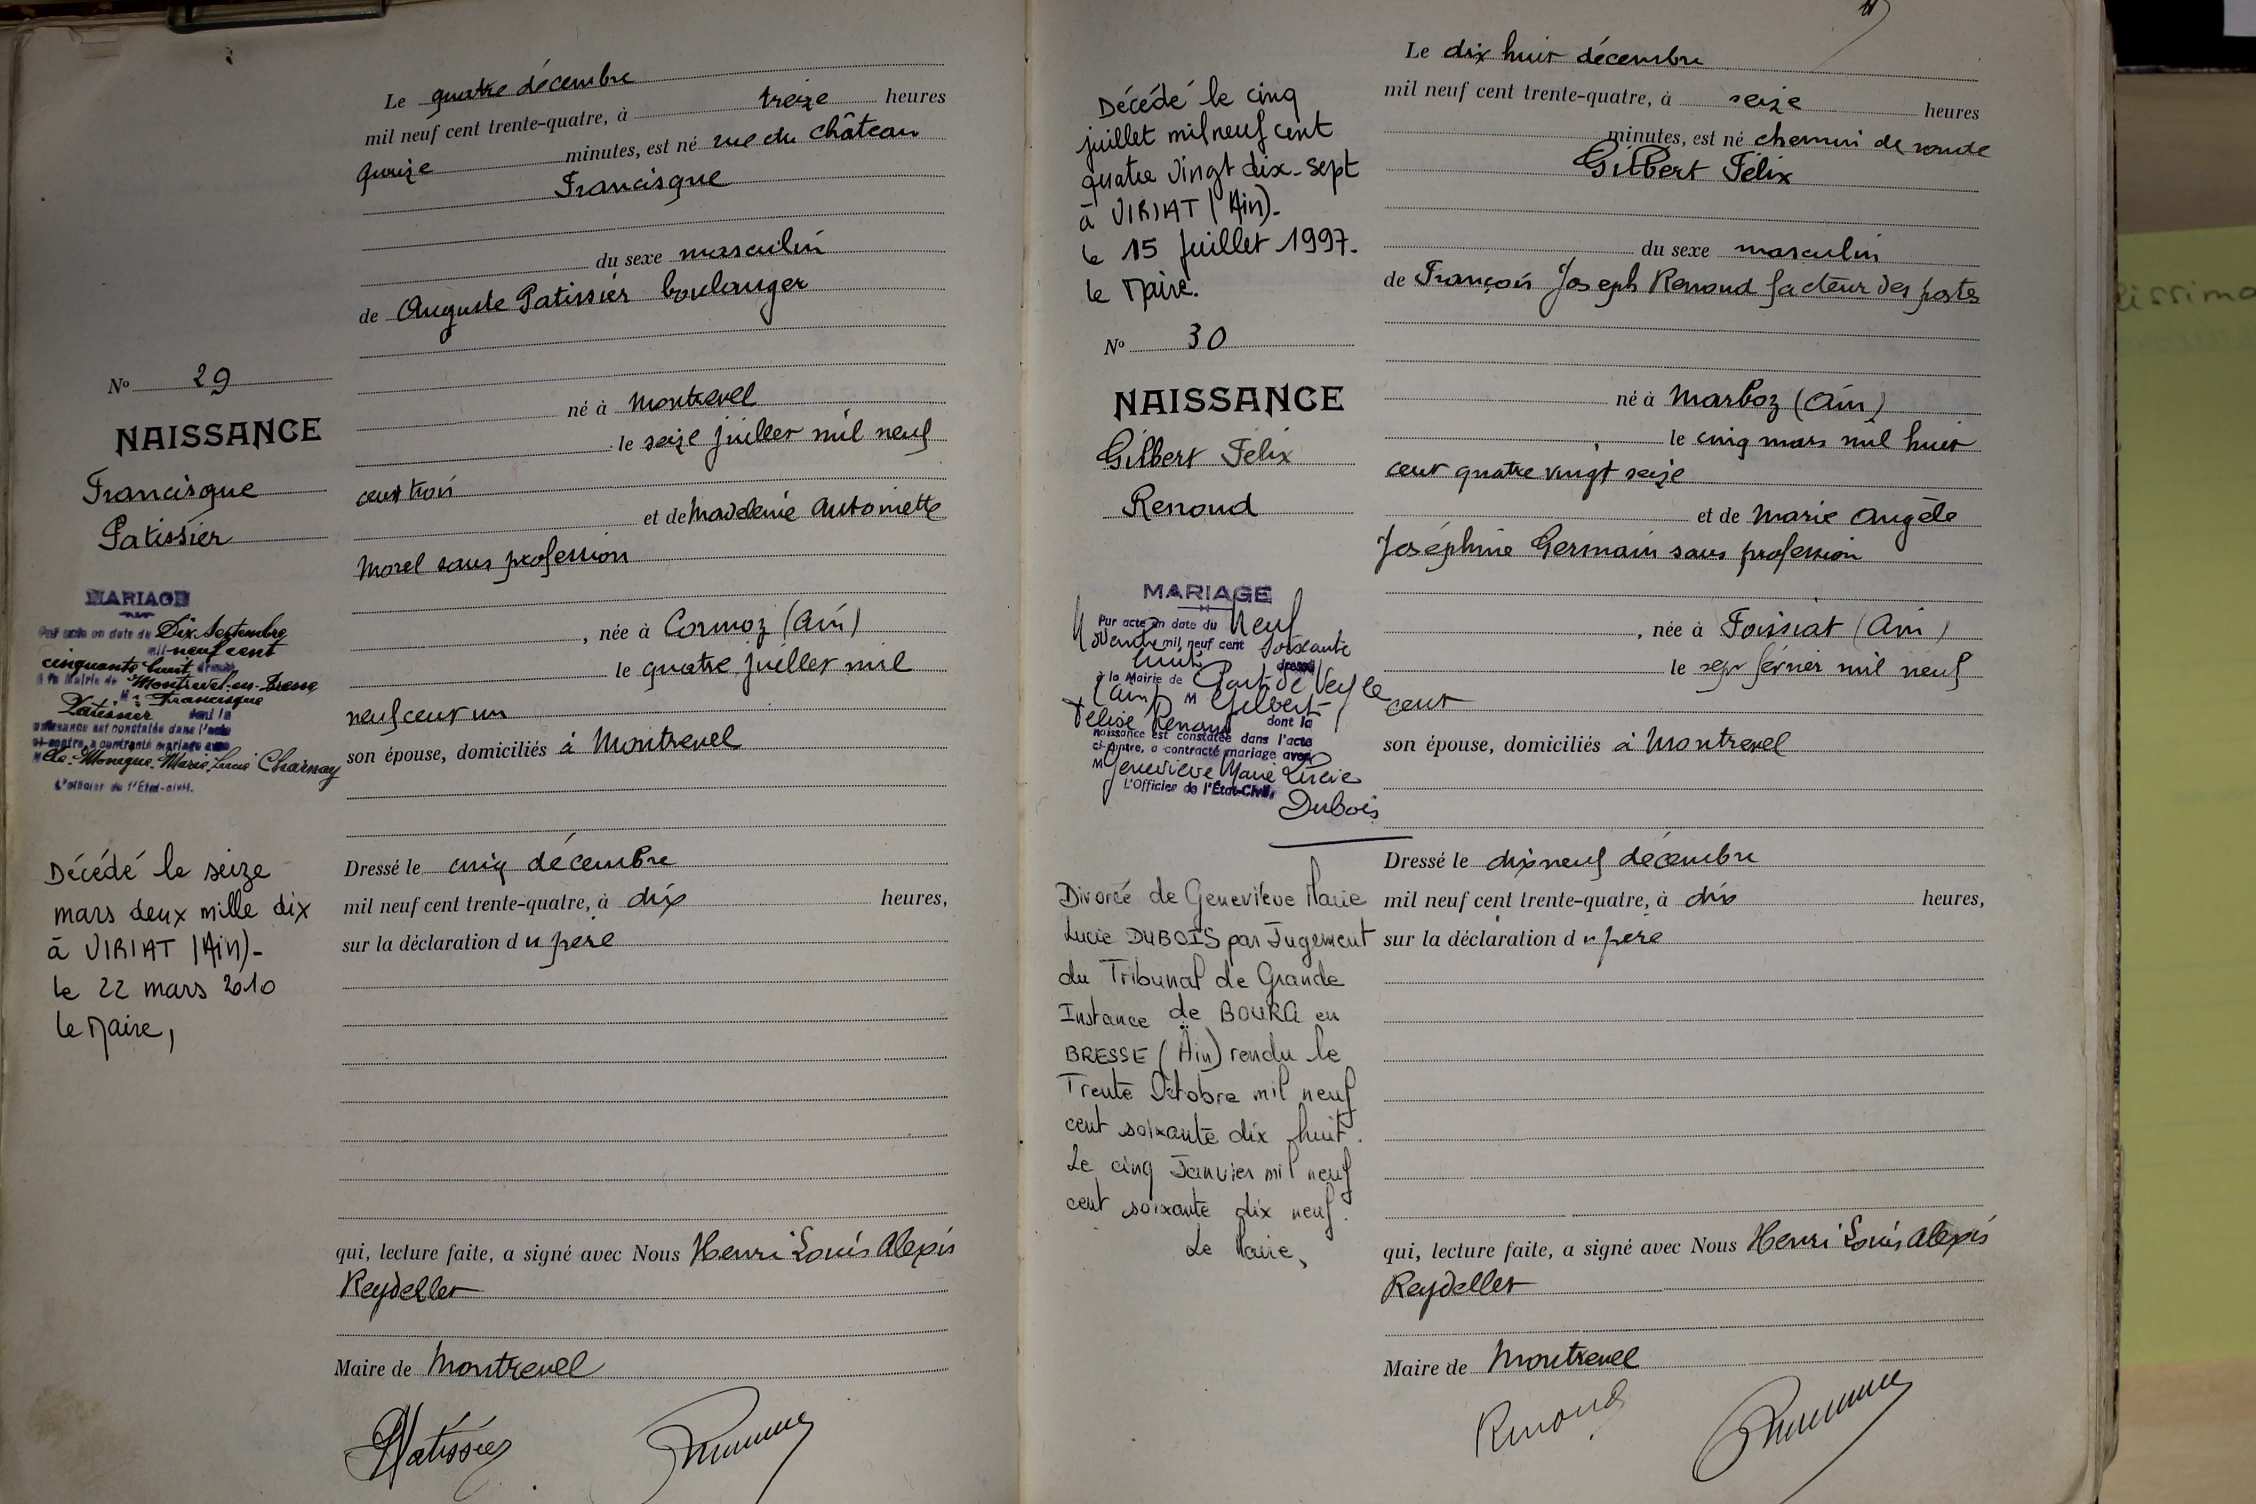 Le quatre décembre
mil neuf cent trente-quatre, à treize heures
quinze minutes, est né rue du château
Francisque
du sexe masculin
de Auguste Patissier boulanger
né à Montrevel
le seize juillet mil neuf
cent trois
et de Madeleine Antoinette
Morel sans profession
, née à Cormoz (Ain)
le quatre juillet mil
neuf cent un
son épouse, domiciliés à Montrevel
Dressé le cinq décembre
mil neuf cent trente-quatre, à dix heures,
sur la déclaration du père
qui, lecture faite, a signé avec Nous Henri Louis Alexis
Reydellet
Maire de Montrevel
Patissier
No 29
NAISSANCE
Francisque
Patissier
MARIAGE
Par acte en date du Dix Septembre
mil neuf cent
cinquante huit dressé
à la Mairie de Montrevel-en-Bresse
M Francisque
Patissier dont la
naissance est constatée dans l'acte
ci-contre, a contracté mariage avec
Monique Marie Lucie Charnay
L'Officier de l'État-civil.
Décédé le seize
mars deux mille dix
à VIRIAT (Ain)-
le 22 mars 2010
le Maire,
Décédé le cinq
juillet mil neuf cent
quatre vingt dix-sept
à VIRIAT (Ain)-
le 15 juillet 1997.
le Maire.
No 30
NAISSANCE
Gilbert Félix
Renoud
MARIAGE
Par acte en date du Neuf
Novembre mil neuf cent soixante
huit dressé
à la Mairie de Pont de Veyle
(Ain) M Gilbert
Félix Renoud dont la
naissance est constatée dans l'acte
ci-contre, a contracté mariage avec
M Geneviève Marie Lucie
L'Officier de l'État-Civil,
Dubois
Divorcé de Geneviève Marie
Lucie DUBOIS par Jugement
du Tribunal de Grande
Instance de BOURG en
BRESSE (Ain) rendu le
Trente Octobre mil neuf
cent soixante dix huit.
Le cinq Janvier mil neuf
cent soixante dix neuf.
Le Maire,
Le dix huit décembre
mil neuf cent trente-quatre, à seize heures
minutes, est né chemin de ronde
Gilbert Félix
du sexe masculin
de François Joseph Renoud facteur des postes
né à Marboz (Ain)
le cinq mars mil huit
cent quatre vingt seize
et de Marie Angèle
Joséphine Germain sans profession
, née à Foissiat (Ain)
le sept février mil neuf
cent
son épouse, domiciliés à Montrevel
Dressé le dix neuf décembre
mil neuf cent trente-quatre, à dix heures,
sur la déclaration du père
qui, lecture faite, a signé avec Nous Henri Louis Alexis
Reydellet
Maire de Montrevel
Renoud